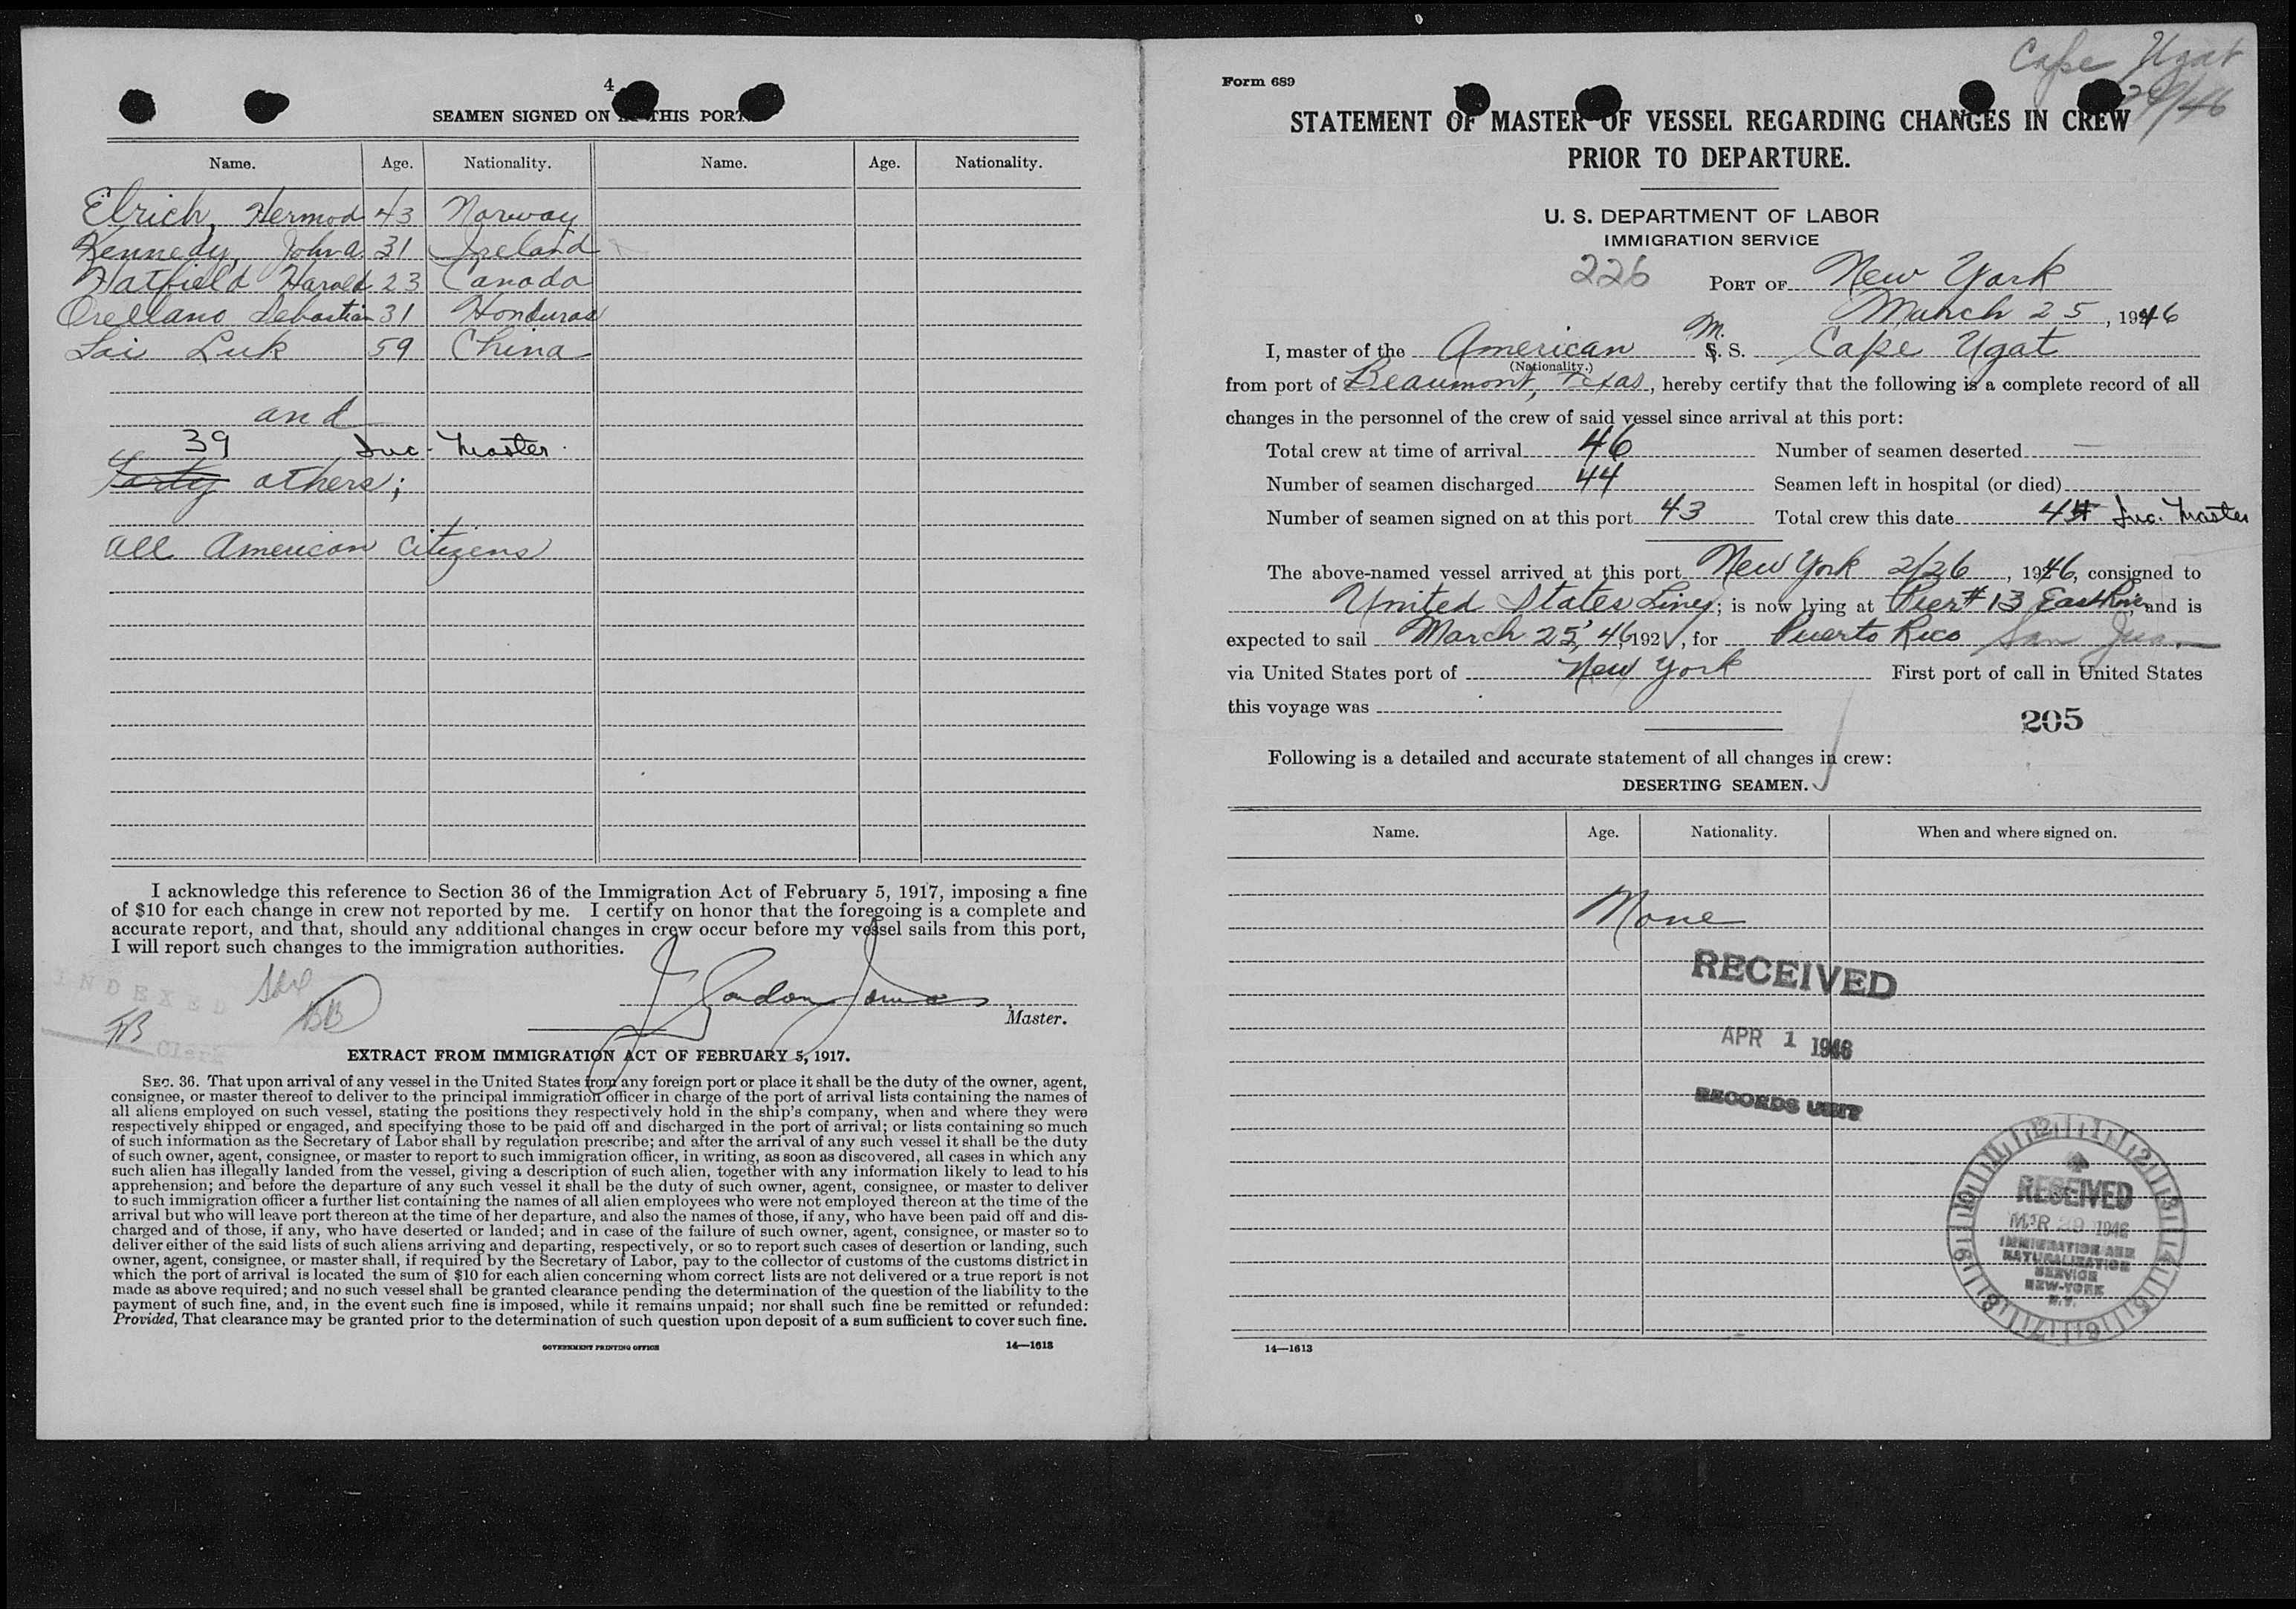 4
SEAMEN SIGNED ON AT THIS PORT.
Name. Age. Nationality. Name. Age. Nationality.
Elrich, Hermod 43 Norway
Kennedy, John A. 31 Ireland
Hatfield Harold 23 Canada
Orellano Sebastian 31 Honduras
Lai Luk 59 China
and
39 Inc. Master.
Forty others;
all American Citizens
I acknowledge this reference to Section 36 of the Immigration Act of February 5, 1917, imposing a fine
of $10 for each change in crew not reported by me. I certify on honor that the foregoing is a complete and
accurate report, and that, should any additional changes in crew occur before my vessel sails from this port,
I will report such changes to the immigration authorities.
INDEXED
Clerk
J Gordon Jones
Master.
EXTRACT FROM IMMIGRATION ACT OF FEBRUARY 5, 1917.
SEC. 36. That upon arrival of any vessel in the United States from any foreign port or place it shall be the duty of the owner, agent,
consignee, or master thereof to deliver to the principal immigration officer in charge of the port of arrival lists containing the names of
all aliens employed on such vessel, stating the positions they respectively hold in the ship's company, when and where they were
respectively shipped or engaged, and specifying those to be paid off and discharged in the port of arrival; or lists containing so much
of such information as the Secretary of Labor shall by regulation prescribe; and after the arrival of any such vessel it shall be the duty
of such owner, agent, consignee, or master to report to such immigration officer, in writing, as soon as discovered, all cases in which any
such alien has illegally landed from the vessel, giving a description of such alien, together with any information likely to lead to his
apprehension; and before the departure of any such vessel it shall be the duty of such owner, agent, consignee, or master to deliver
to such immigration officer a further list containing the names of all alien employees who were not employed thereon at the time of the
arrival but who will leave port thereon at the time of her departure, and also the names of those, if any, who have been paid off and dis-
charged and of those, if any, who have deserted or landed; and in case of the failure of such owner, agent, consignee, or master so to
deliver either of the said lists of such aliens arriving and departing, respectively, or so to report such cases of desertion or landing, such
owner, agent, consignee, or master shall, if required by the Secretary of Labor, pay to the collector of customs of the customs district in
which the port of arrival is located the sum of $10 for each alien concerning whom correct lists are not delivered or a true report is not
made as above required; and no such vessel shall be granted clearance pending the determination of the question of the liability to the
payment of such fine, and, in the event such fine is imposed, while it remains unpaid; nor shall such fine be remitted or refunded:
Provided, That clearance may be granted prior to the determination of such question upon deposit of a sum sufficient to cover such fine.
GOVERNMENT PRINTING OFFICE 14—1613
Cape Ugat
Form 689
STATEMENT OF MASTER OF VESSEL REGARDING CHANGES IN CREW
PRIOR TO DEPARTURE.
U. S. DEPARTMENT OF LABOR
IMMIGRATION SERVICE
226 PORT OF New York
March 25, 1946
I, master of the American M. S. S. Cape Ugat
(Nationality.)
from port of Beaumont, Texas, hereby certify that the following is a complete record of all
changes in the personnel of the crew of said vessel since arrival at this port:
Total crew at time of arrival 46 Number of seamen deserted —
Number of seamen discharged 44 Seamen left in hospital (or died)
Number of seamen signed on at this port 43 Total crew this date 44 Inc. Master
The above-named vessel arrived at this port New York 2/26, 1946, consigned to
United States Lines; is now lying at Pier #13 East River and is
expected to sail March 25, '46 192, for Puerto Rico San Juan
via United States port of New York First port of call in United States
this voyage was
205
Following is a detailed and accurate statement of all changes in crew:
DESERTING SEAMEN.
Name. Age. Nationality. When and where signed on.
None
RECEIVED
APR 1 1946
RECORDS UNIT
12 1 2 3 4 5 6 7 8 9 10 11
RECEIVED
MAR 29 1946
IMMIGRATION AND
NATURALIZATION
SERVICE
NEW-YORK
N.Y.
14—1613